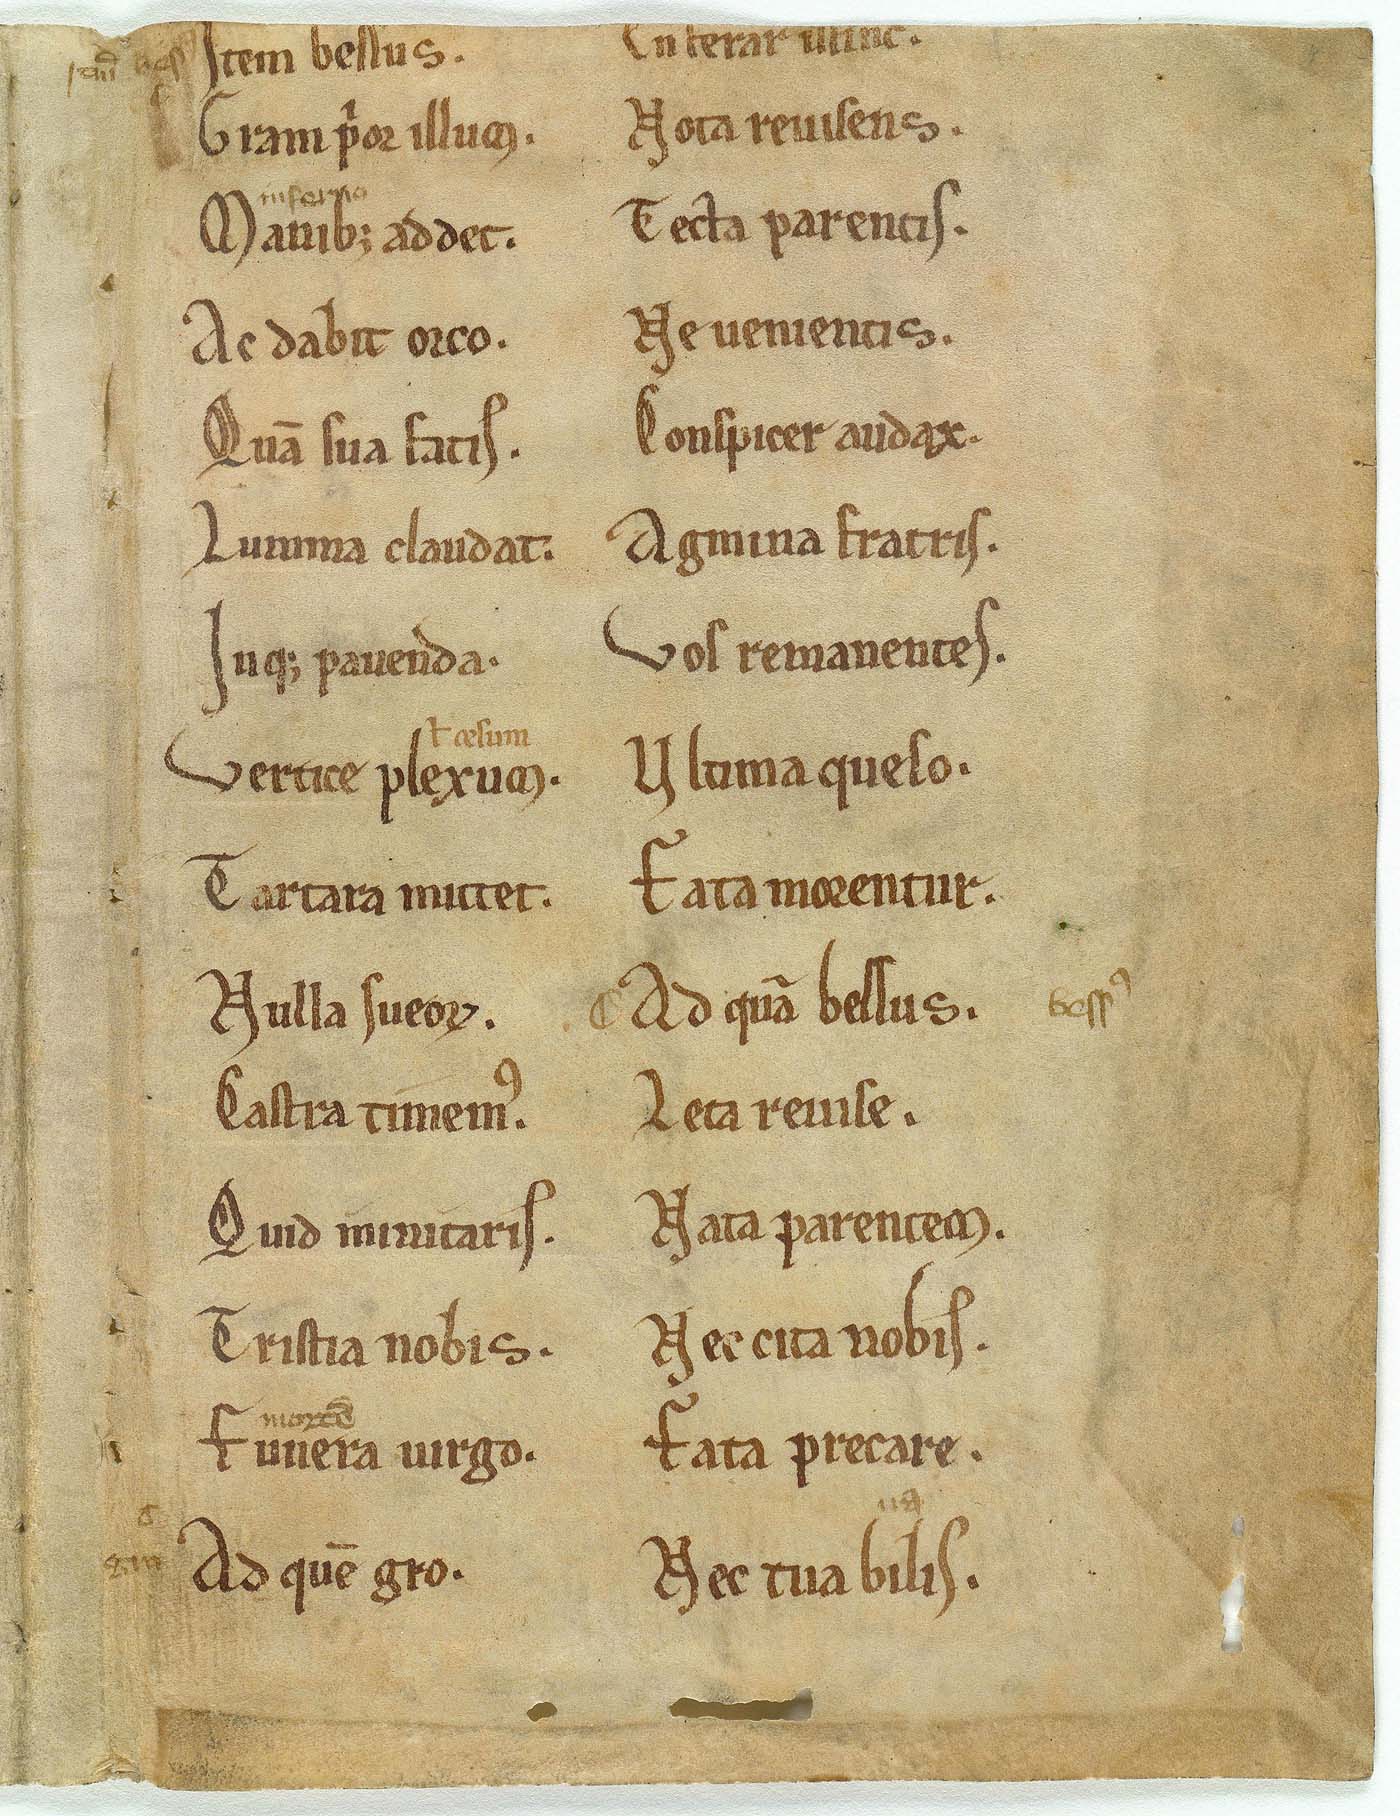 Item bellus.
Gram p̄or illum.
inferno
Manib; addet.
Ac dabit orco.
Quā sua fatis.
Lumina claudat:
Inq; pauenda.
ł cesum
Vertice plexum.
Tartara mittet.
Nulla sueoꝝ.
Castra timemꝰ.
Quid minitaris.
Tristia nobis.
mortē
Funera uirgo.
Ad quē gro.
illinc.
Nota reuisens.
Tecta parentis.
Ne uenientis.
Conspicer audax.
Agmina fratris.
Vos remanentes.
Vltima queso.
Fata morentur.
Ad quā bellus.
bessꝰ
Leta reuise.
Nata parentem.
Nec cita nobis.
Fata precare.
Nec tua bilis.